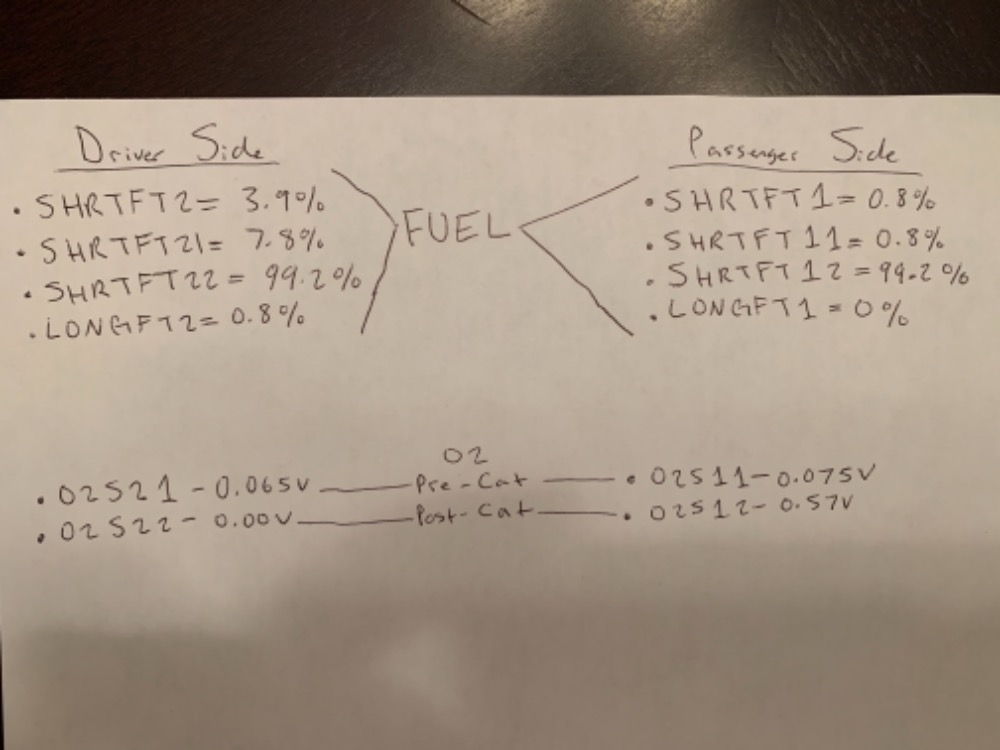 Driver Side
• SHRTFT2= 3.9%
• SHRTFT21= 7.8%
• SHRTFT22= 99.2%
• LONGFT2= 0.8%
FUEL
Passenger Side
• SHRTFT1= 0.8%
• SHRTFT11= 0.8%
• SHRTFT12=99.2%
• LONGFT1= 0%
O2
• O2S21-0.065V Pre-Cat • O2S11-0.075V
• O2S22-0.00V Post-Cat • O2S12-0.57V